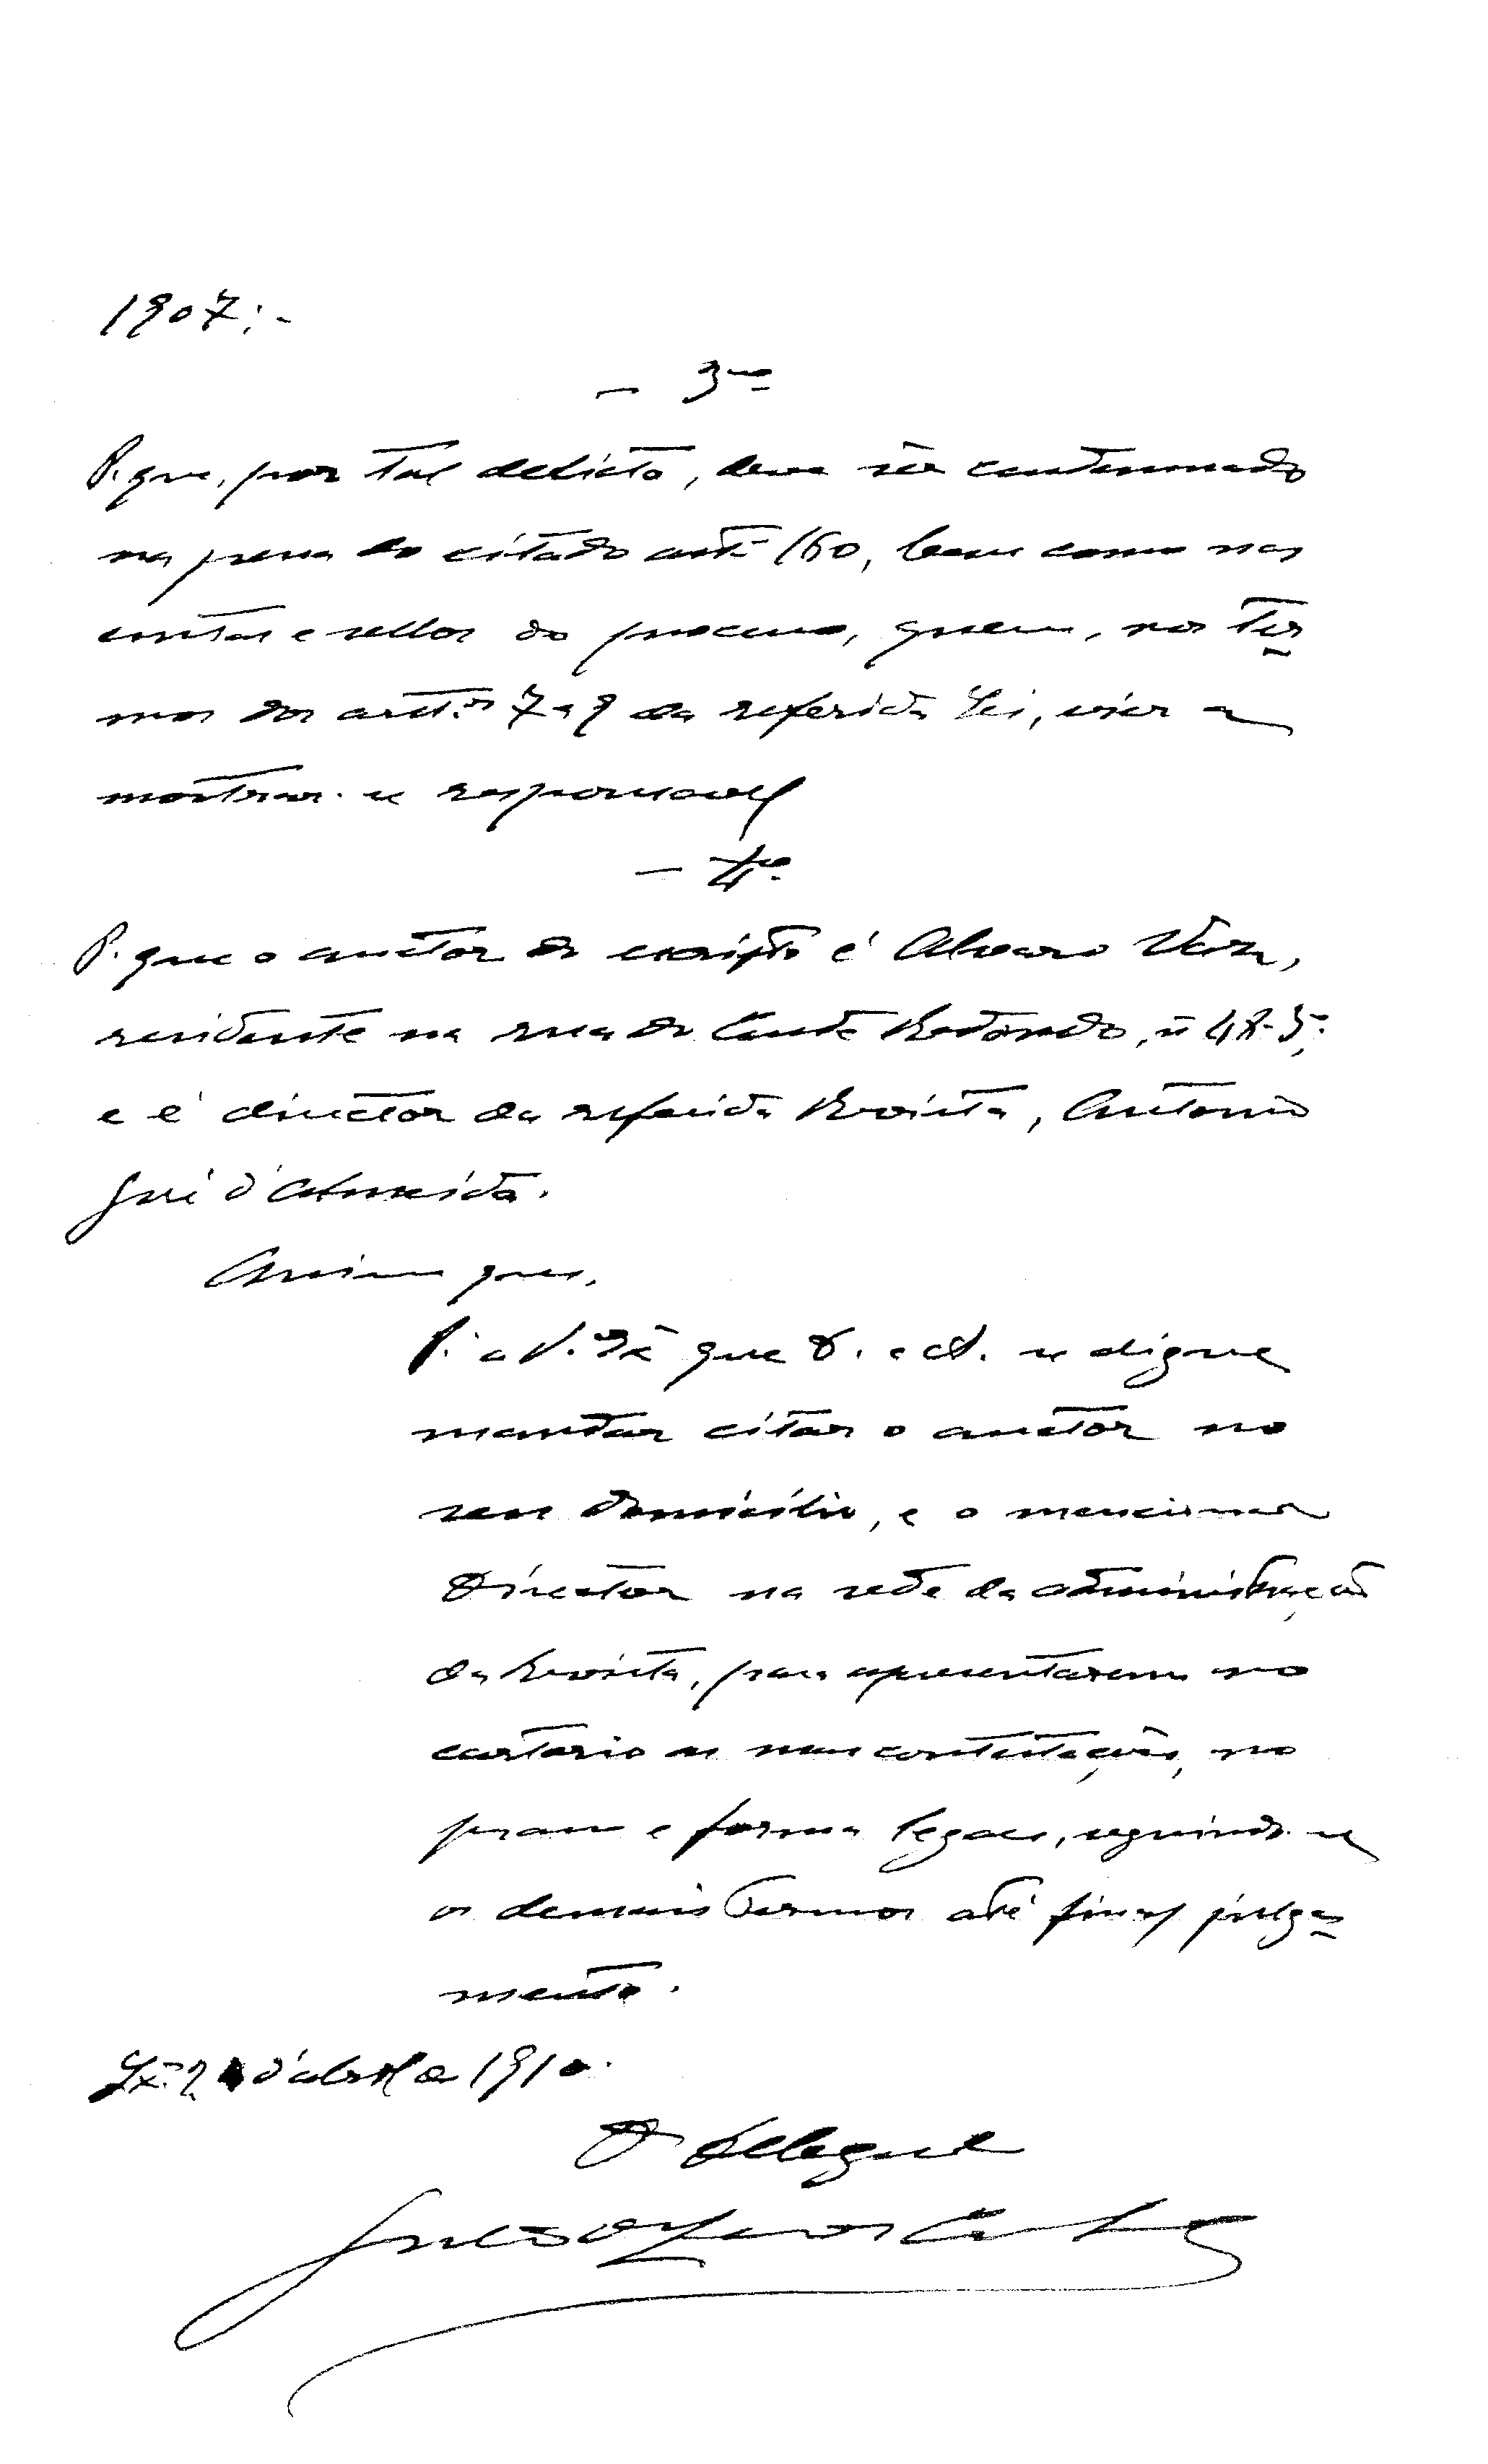 1907:-
— 3º
P. que, por tal delicto, deve ser condemnado
na pena do citado artº 160, bem como nas
custas e sellos do processo, quem, nos ter
mos dos artt.os 7 a 9 da referida Lei, vier a
mostrar-se responsavel
— 4º
P. que o auctor do escripto é Alvaro Vaz,
residente na rua do Conde Redondo, nº 48-5º;
e é director da referida Revista, Antonio
José d'Almeida.
Assim pois,
P. a V. Exª que D. e A. se digne
mandar citar o auctor no
seu domicilio, e o mencionado
Director na sede da administração
da Revista, para apresentarem no
cartorio as suas contestações, no
praso e forma legaes, seguindo-se
os demais termos até final julga
mento.
Lxª 2 d'abril de 1910.
O Delegado